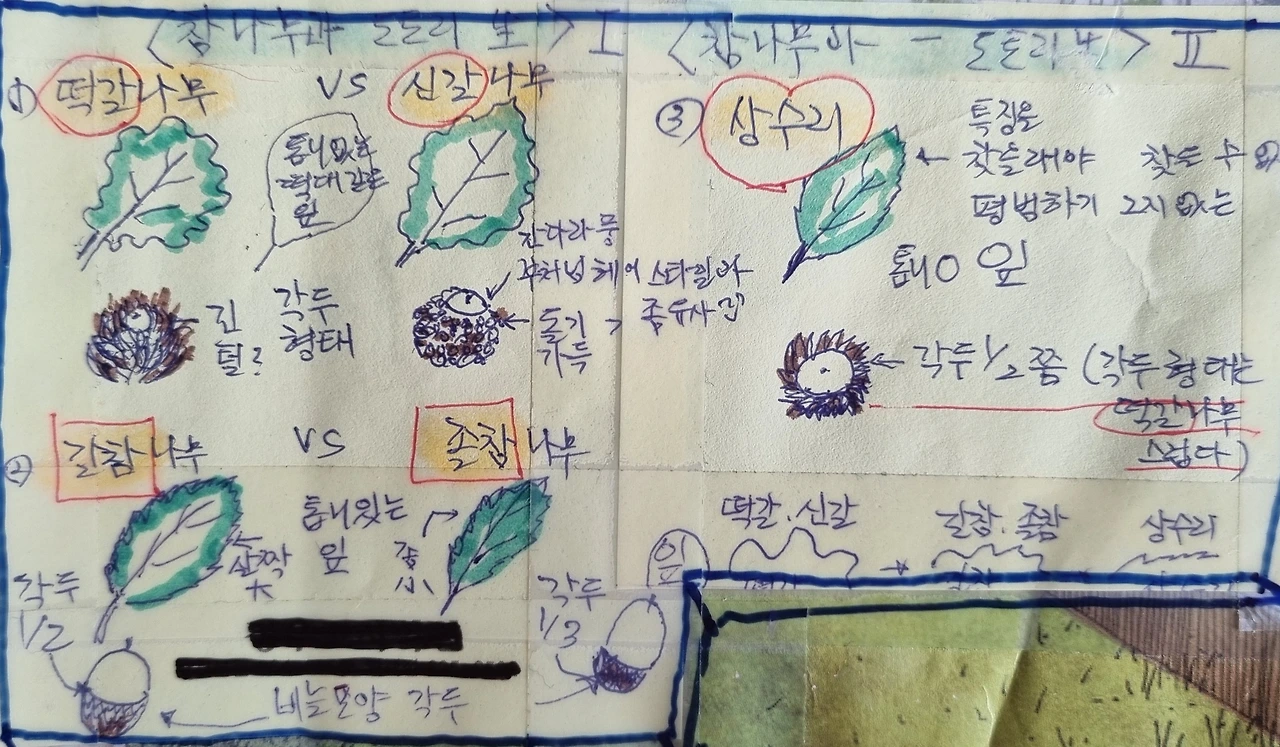 <참나무과 도토리 브> I
① 떡갈나무 VS 신갈나무
톱니없는
떡대같은
잎
긴
털?
각두
형태
잔다라뭉
부처님헤어스타일과
좀유사함
돌기
가득
② 갈참나무 VS 졸참나무
톱니있는
잎
살짝
大
좀
小
각두
1/2
각두
1/3
비늘모양 각두
<참나무과 - 도토리 > II
③ 상수리
특징을
찾을래야 찾을 수
평범하기 그지없는
톱니 잎
각두 1/2쯤 (각두형태는
떡갈나무
스럽다)
잎
떡갈.신갈
갈참.졸참
상수리